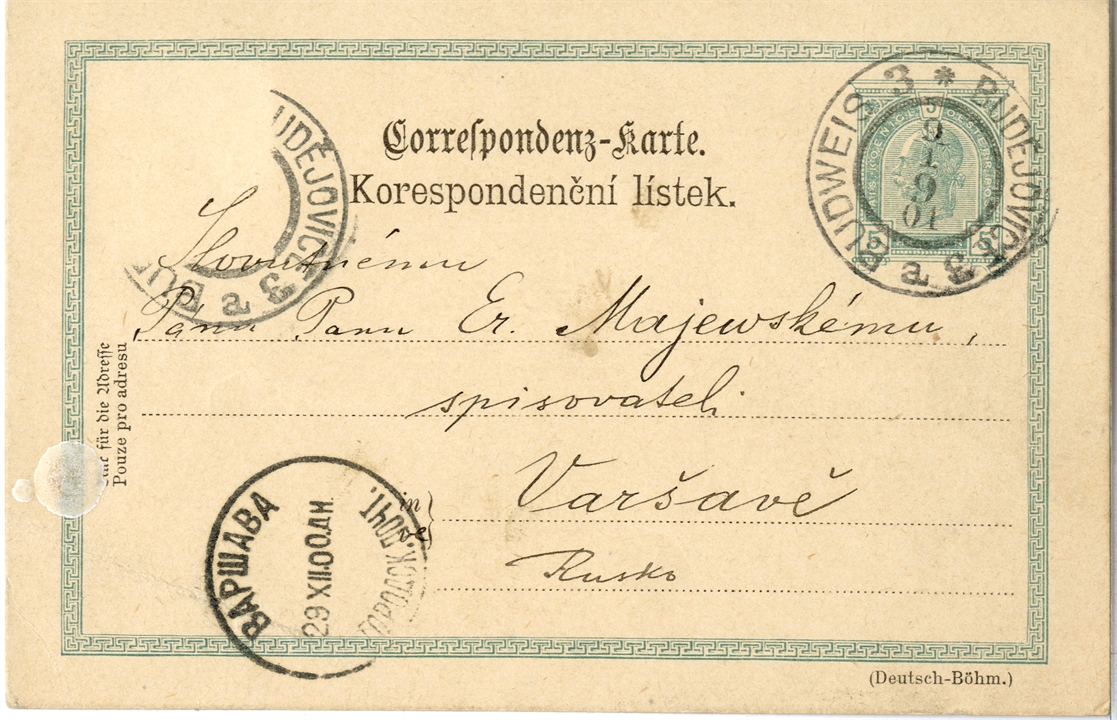 Correspondenz-Karte.
Korespondenční lístek.
BUDWEIS 3 * BUDĚJOVICE 3 a
9
1
9
01
5
5 5
UDĚJOVICE 3 a BU
Slovutnému
Pánu Panu Er. Majewskému,
spisovateli
Varšavě
in
ve
Rusko
für die Adresse
Pouze pro adresu
ВАРШАВА
29 XII.00
ГОРОДСК. ПОЧТ.
(Deutsch-Böhm.)